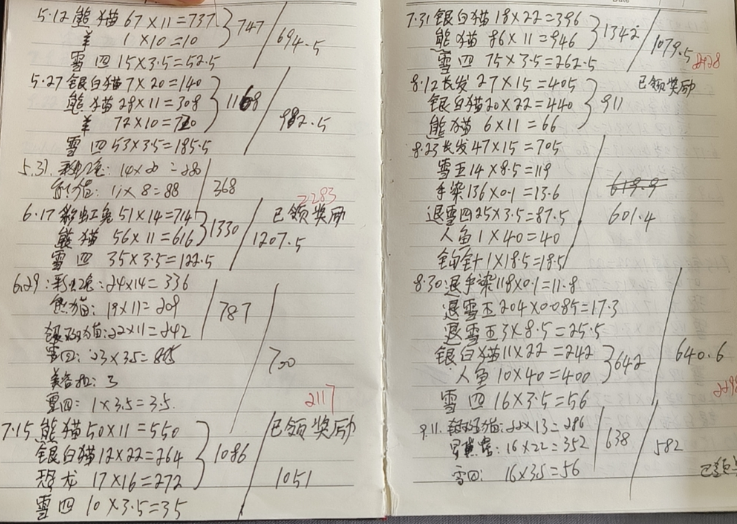 5.12 熊猫 67×11=737
羊 1×10=10
747
雪四 15×3.5=52.5
694.5
5.27 银白猫 7×20=140
熊猫 28×11=308
羊 72×10=720
1168
雪四 53×3.5=185.5
982.5
5.31
11×8=88
368
2283
6.17 彩虹兔 51×14=714
熊猫 56×11=616
1330
已领奖励
雪四 35×3.5=122.5
1207.5
6.29: 24×14=336
熊猫: 19×11=209
22×11=242
787
雪四: 23×3.5=
700
雪四: 1×3.5=3.5
2117
7.15 熊猫 50×11=550
银白猫 12×22=264
恐龙 17×16=272
1086
已领奖励
雪四 10×3.5=35
1051
7.31 银白猫 18×22=396
熊猫 86×11=946
1342
雪四 75×3.5=262.5
1079.5
8.12 长发 27×15=405
已领奖励
银白猫 20×22=440
熊猫 6×11=66
911
8.23 长发 47×15=705
雪五 14×8.5=119
手染 136×0.1=13.6
退雪四 25×3.5=87.5
601.4
人鱼 1×40=40
钩针 1×18.5=18.5
8.30: 退手染 118×0.1=11.8
退雪五 204×0.085=17.3
退雪五 3×8.5=25.5
银白猫 11×22=242
人鱼 10×40=400
642
640.6
雪四 16×3.5=56
9.11 22×13=286
16×22=352
638
雪四: 16×3.5=56
582